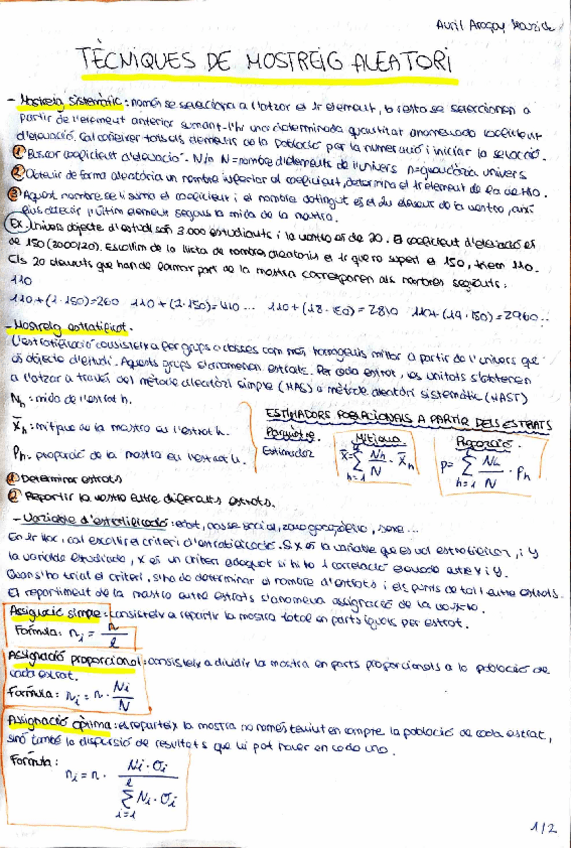 Avril Aragay
TÈCNIQUES DE MOSTREIG ALEATORI
- Mostreig sistemàtic: només se selecciona a l'atzar el 1r element, la resta se seleccionen a
partir de l'element anterior sumant-l'hi una determinada quantitat anomenada coeficient
d'elevació. Cal conèixer tots els elements de la població per la numeració i iniciar la selecció.
① Buscar coeficient d'elevació. N/n N=nombre d'elements de l'univers n=
univers
② Obtenir de forma aleatòria un nombre inferior al coeficient, determina el 1r element de la mostra.
③ Aquest nombre se li suma el coeficient i el nombre obtingut és el 2n element de la mostra, així
fins obtenir l'últim element segons la mida de la mostra.
Ex. Univers objecte d'estudi són 3.000 estudiants i la mostra és de 20. El coeficient d'elevació és
de 150 (3000/20). Escollim de la llista de nombres aleatoris el 1r que no superi el 150, triem 110.
Els 20 elements que han de formar part de la mostra corresponen als nombres següents:
110
110+(1·150)=260 110+(2·150)=410 ... 110+(18·150)=2810 110+(19·150)=2960...
- Mostreig estratificat.
L'estratificació consisteix a fer grups o classes com més homogenis millor a partir de l'univers que
és objecte d'estudi. Aquests grups s'anomenen estrats. Per cada estrat, les unitats s'obtenen
a l'atzar a través del mètode aleatòri simple (MAS) o mètode aleatòri sistemàtic (MAST)
Nh: mida de l'estrat h.
x̄h: mitjana de la mostra en l'estrat h.
Ph: proporció de la mostra en l'estrat h.
ESTIMADORS POBLACIONALS A PARTIR DELS ESTRATS
Paràmetre. Mitjana Proporció.
Estimador x̄ = Σ h=1 Nh/N · x̄h p = Σ h=1 Nh/N · Ph
① Determinar estrats
② Repartir la mostra entre diferents estrats.
- Variable d'estratificació: edat, classe social, zona geogràfica, sexe...
En 1r lloc, cal escollir el criteri d'estratificació. Si X és la variable que es vol estratificar, i Y
la variable estudiada, X és un criteri adequat si hi ha 1 correlació elevada entre X i Y.
Quan s'ha triat el criteri, s'ha de determinar el nombre d'estrats i els punts de tall entre estrats.
El repartiment de la mostra entre estrats s'anomena assignació de la mostra.
Assignació simple: consisteix a repartir la mostra total en parts iguals per estrat.
Fórmula: ni = n/l
Assignació proporcional: consisteix a dividir la mostra en parts proporcionals a la població de
cada estrat.
Fórmula: ni = n · Ni/N
Assignació òptima: es reparteix la mostra no només tenint en compte la població de cada estrat,
sinó també la dispersió de resultats que hi pot haver en cada uno.
Fórmula: ni = n · Ni · σi / Σ i=1 l Ni · σi
1/2